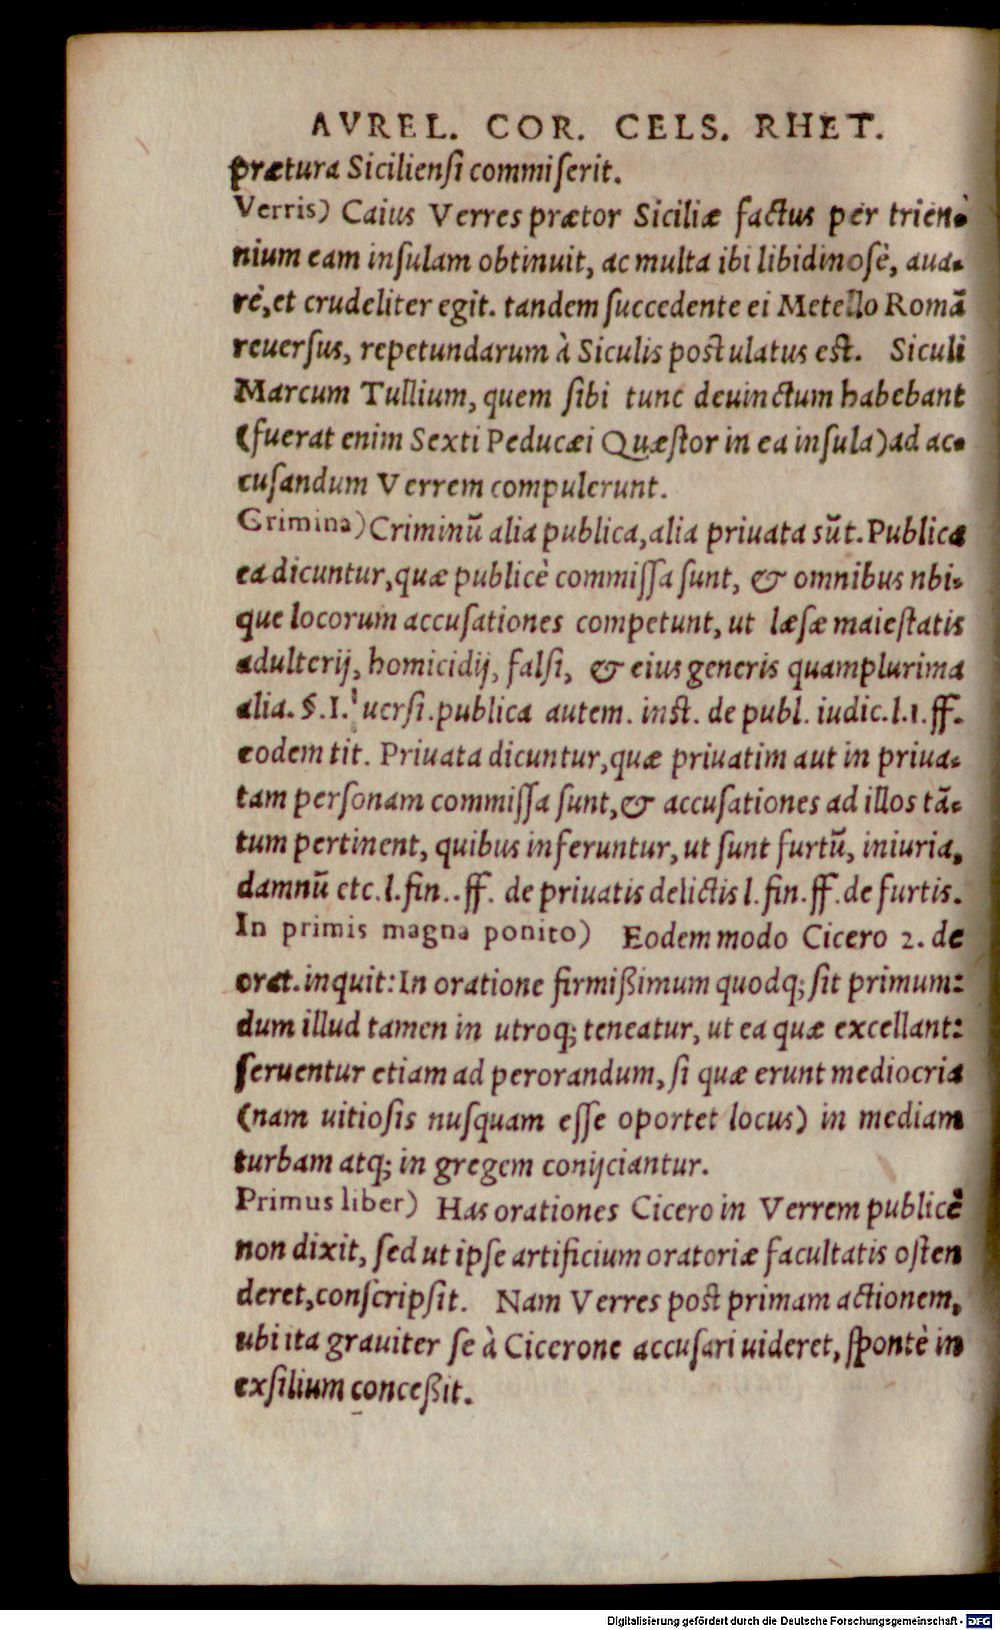 AVREL. COR. CELS. RHET.
prætura Siciliensi commiserit.
Verris) Caius Verres prætor Siciliæ factus per trien-
nium eam insulam obtinuit, ac multa ibi libidinosè, aua-
rè, et crudeliter egit. tandem succedente ei Metello Romã
reuersus, repetundarum à Siculis postulatus est. Siculi
Marcum Tullium, quem sibi tunc deuinctum habebant
(fuerat enim Sexti Peducæi Quæstor in ea insula) ad ac-
cusandum Verrem compulerunt.
Grimina) Criminũ alia publica, alia priuata sũt. Publica
ea dicuntur, quæ publicè commissa sunt, & omnibus nbi-
que locorum accusationes competunt, ut læsæ maiestatis
adulterij, homicidij, falsi, & eius generis quamplurima
alia. §. I. uersi. publica autem. inst. de publ. iudic. l. 1. ff.
eodem tit. Priuata dicuntur, quæ priuatim aut in priua-
tam personam commissa sunt, & accusationes ad illos tã-
tum pertinent, quibus inferuntur, ut sunt furtũ, iniuria,
damnũ etc. l. fin.. ff. de priuatis delictis l. fin. ff. de furtis.
In primis magna ponito) Eodem modo Cicero 2. de
orat. inquit: In oratione firmißimum quodq; sit primum:
dum illud tamen in utroq; teneatur, ut ea quæ excellant:
seruentur etiam ad perorandum, si quæ erunt mediocria
(nam uitiosis nusquam esse oportet locus) in mediam
turbam atq; in gregem conijciantur.
Primus liber) Has orationes Cicero in Verrem publicè
non dixit, sed ut ipse artificium oratoriæ facultatis osten
deret, conscripsit. Nam Verres post primam actionem,
ubi ita grauiter se à Cicerone accusari uideret, spontè in
exsilium conceßit.
Digitalisierung gefördert durch die Deutsche Forschungsgemeinschaft - DFG